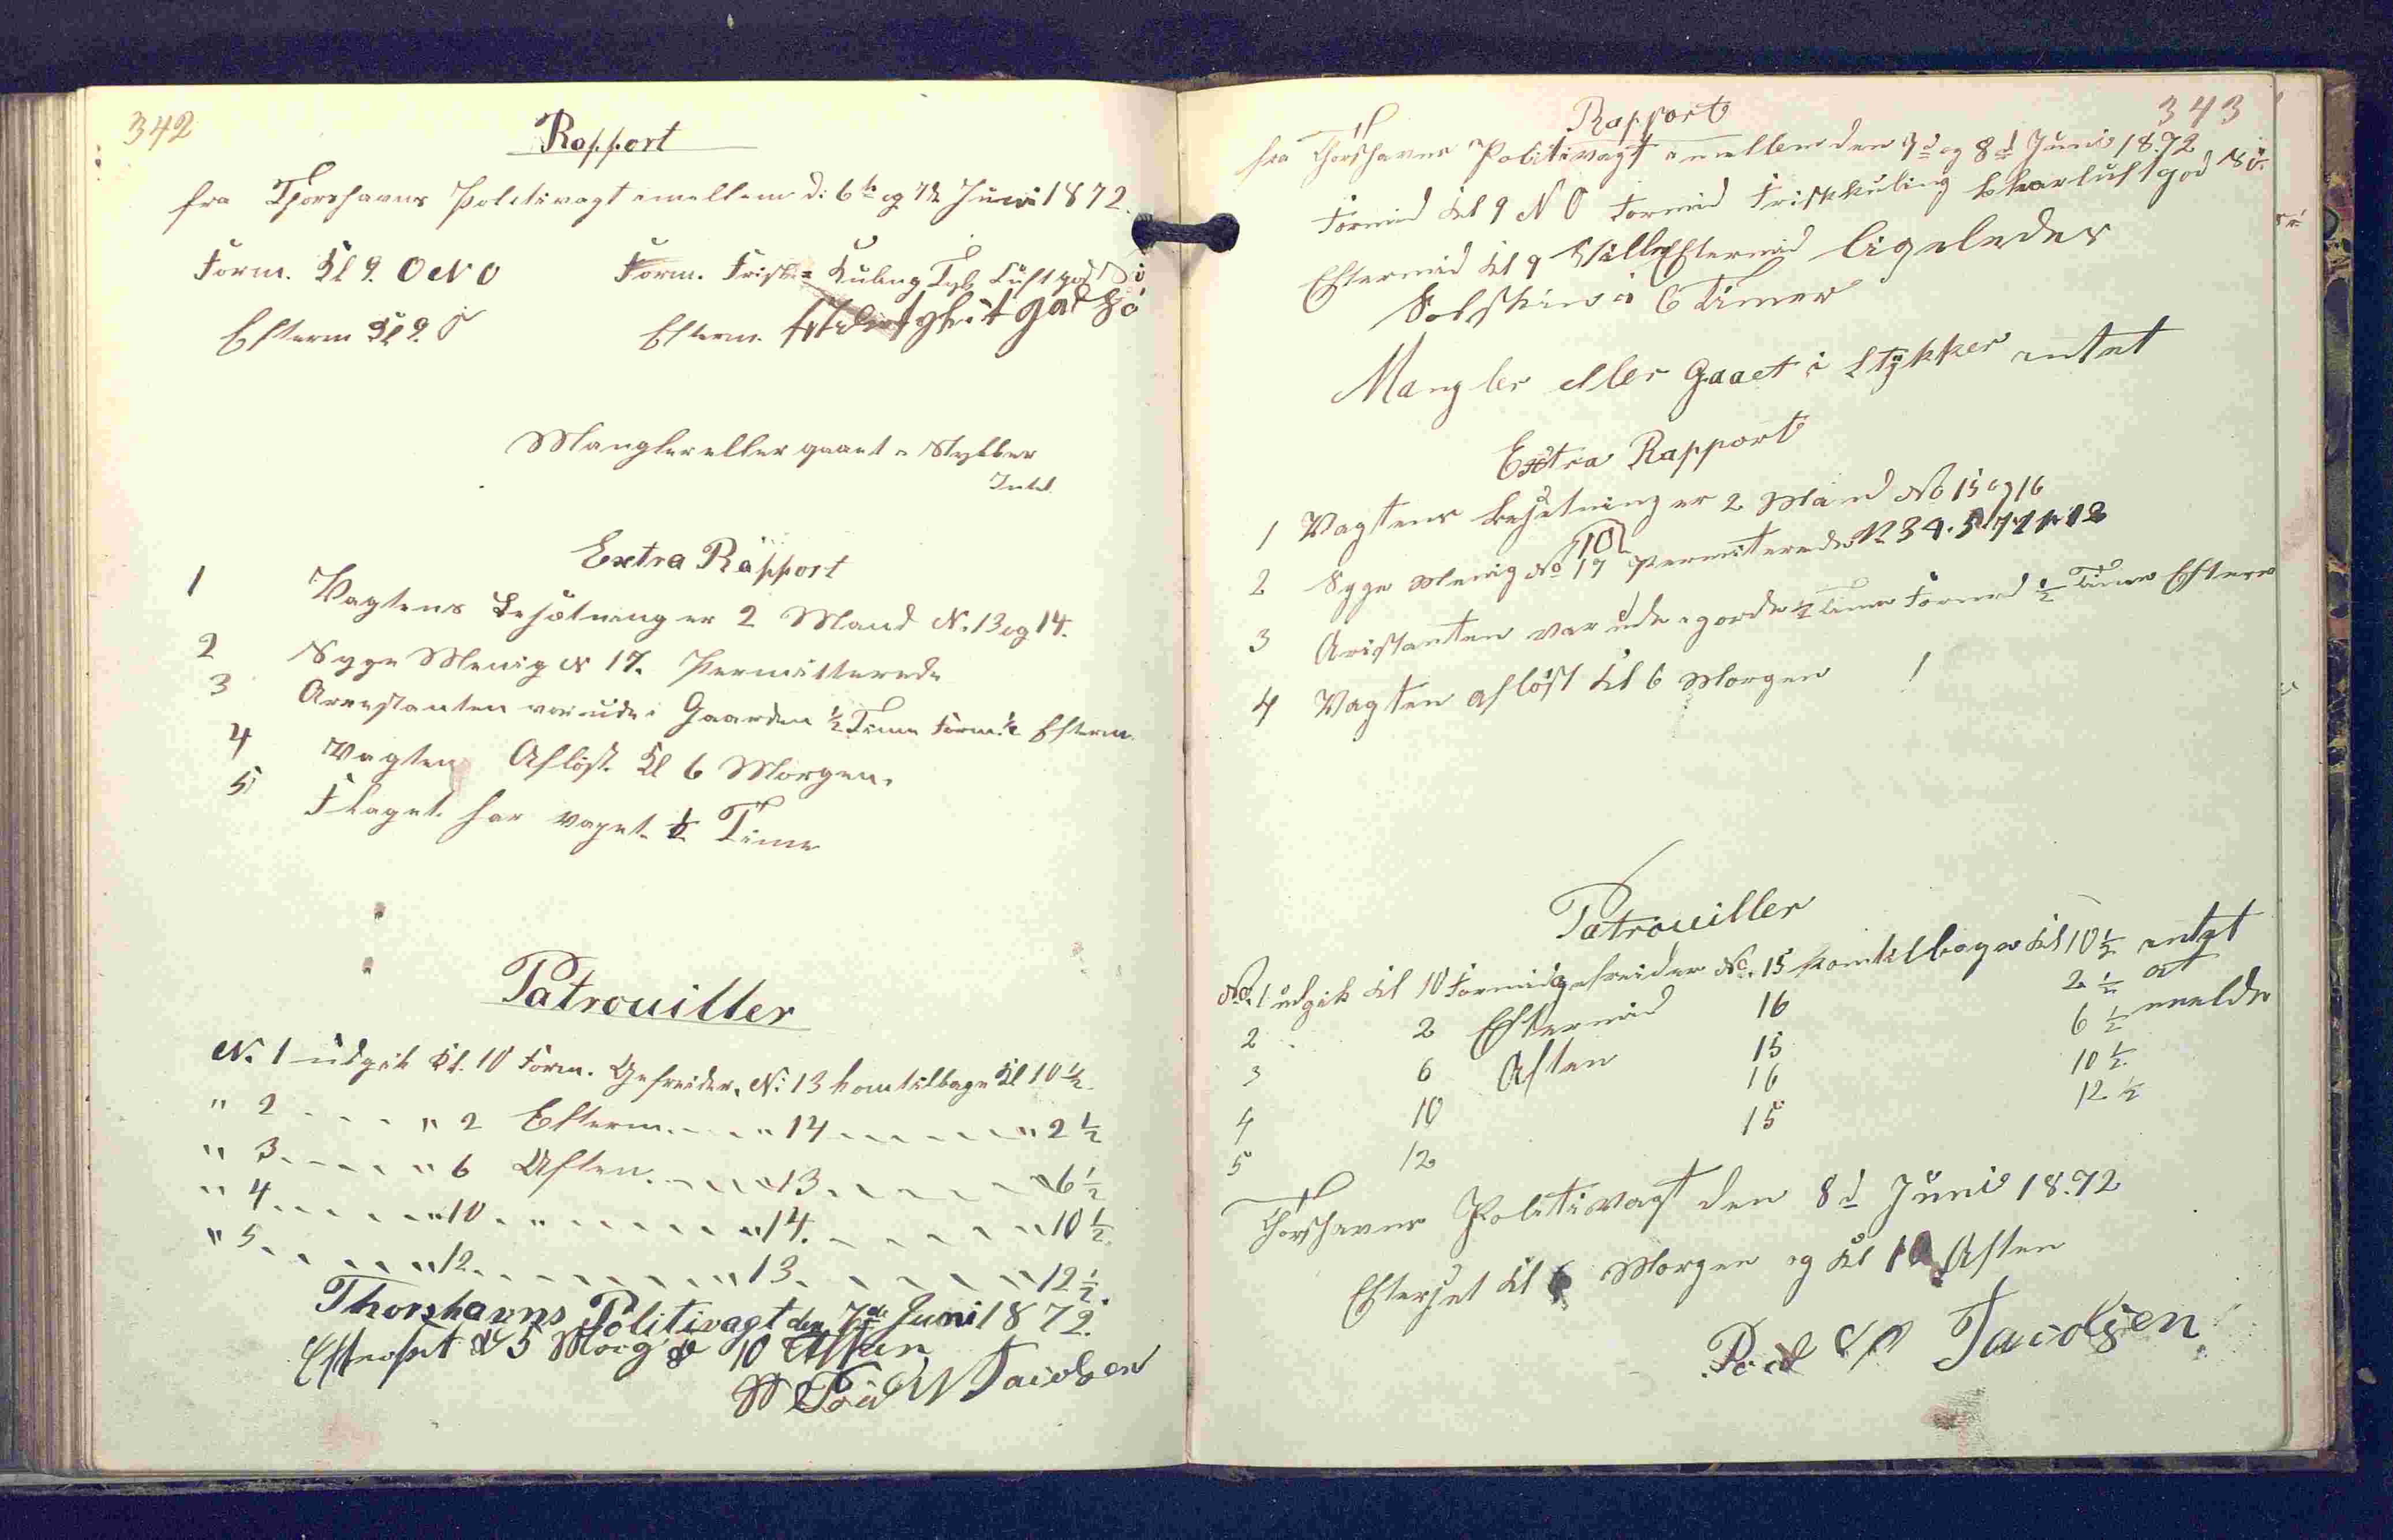 342
Rapport
fra Thorshavns Politivagt imellem d: 6te og 7de Juni 1872.
Form. Kl 9. O N O Form. Frisk= Kuling Tyk Luft god Sö
Efterm Kl 9. O Efterm. god Sö
Mangler eller gaaet i Stykker
Intet.
Extra Rapport
1 Vagtens Besætning er 2 Mand N. 13 og 14.
2 Syge Menig N 17. Permitterede
3 Arrestanten var ude i Gaarden ½ Time Form. ½ Efterm.
4 Vagten Aflöst. Kl 6 Morgen.
5 Flaget har vayet ½ Time
Patrouiller
N. 1 udgik Kl. 10 Form. Gefreider. N: 13 kom tilbage Kl 10½.
" 2 - - - " 2 Efterm. - - - " 14 - - - - - " 2½
" 3 - - - - " 6 Aften. - - - " 13 - - - - - " 6½
" 4 - - - - " 10 - " - - - - " 14. - - - - - " 10½
" 5 - - - - " 12 - - - - - - " 13 - - - - - " 12½.
Thorshavns Politivagt den 7de Juni 1872.
Efterset Kl 5 Morg & 10 Aften
Jacobsen
343
Rapport
fra Thorshavns Politivagt imellem den 7d og 8d Juni 1872
Formid Kl 9 N O Formid Friskkuling klarluft god Sö
Eftermid Kl 9 Stille Eftermid ligeledes
Solskin i 6 Timer
Mangler eller Gaaet i Stykker intet
Extra Rapport
1 Vagtens besetning er 2 Mand No 15 og 16
2 Syge Menig No 17 10 permiterede N 3 4. 5.
3 Aristanten var ude i gorde ½ Time Formd ½ Time Efterm
4 Vagten aflöst Kl 6 Morgen
Patrouiller
No. 1 udgik Kl 10 Formid gefreider No. 15 kom tilbage Kl 10½ intet
2 2 Eftermid 16 2½ at
3 6 Aften 15 6½ melde
4 10 16 10½
5 12 15 12½
Thorshavns Politivagt den 8d Juni 1872
Efterset Kl 6 Morgen og Kl 10 Aften
Jacobsen